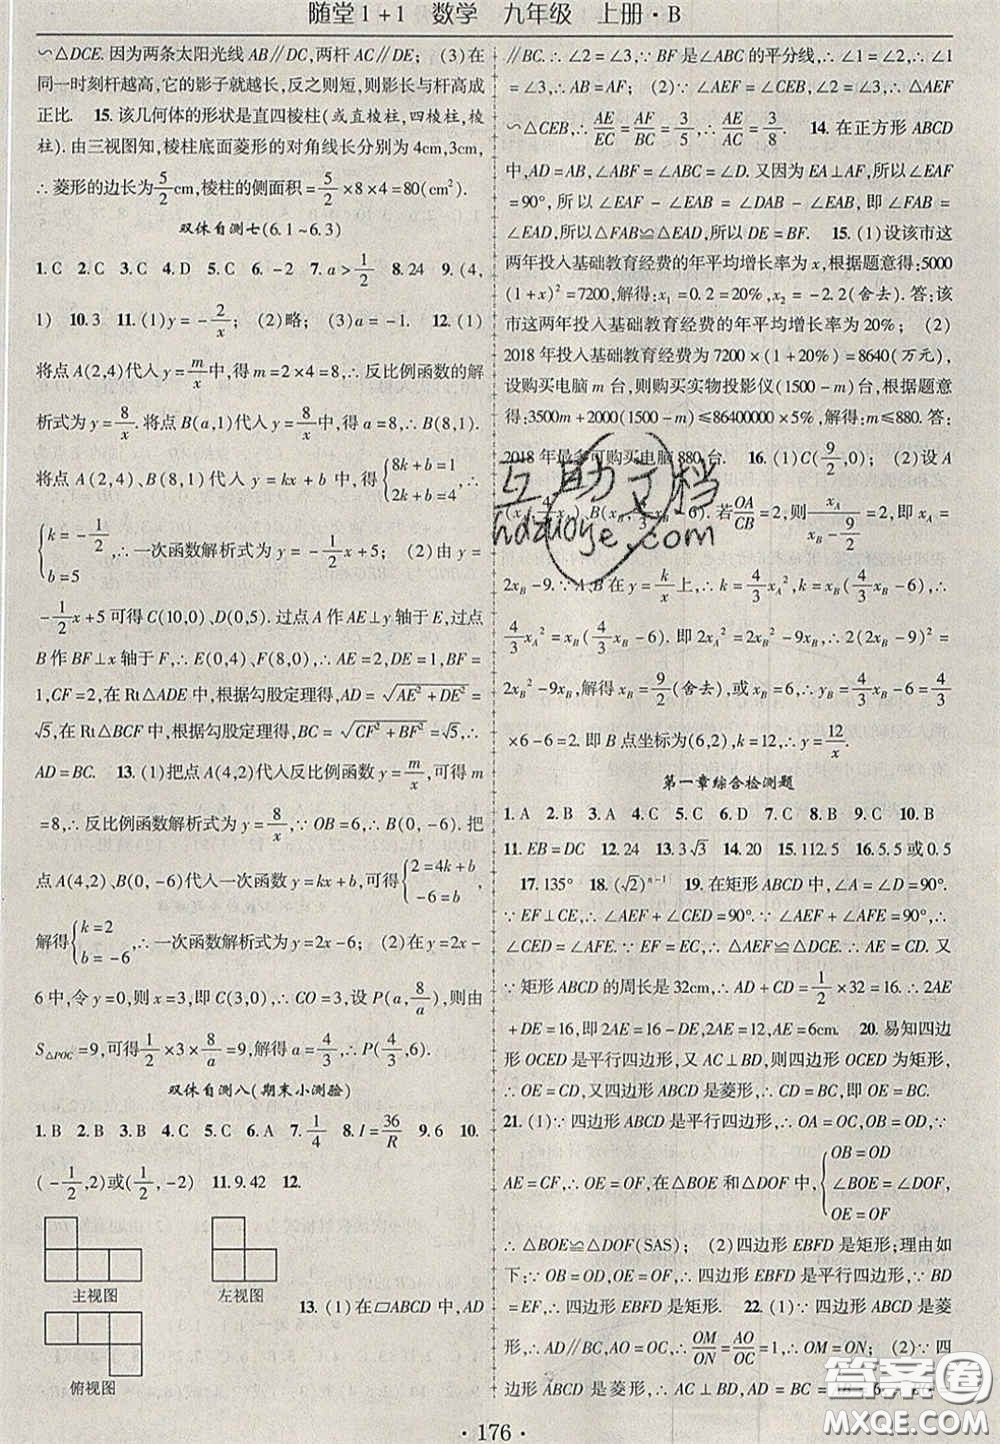 随堂1+1 数学 九年级 上册·B
∽△DCE.因为两条太阳光线AB∥DC,两杆AC∥DE; (3)在
同一时刻杆越高,它的影子就越长,反之则短,则影长与杆高成
正比. 15.该几何体的形状是直四棱柱(或直棱柱,四棱柱,棱
柱).由三视图知,棱柱底面菱形的对角线长分别为4cm,3cm,
∴菱形的边长为5/2cm,棱柱的侧面积=5/2×8×4=80(cm²).
双休自测七(6.1~6.3)
1.C 2.C 3.C 4.D 5.C 6.-2 7.a>1/2 8.24 9.(4,
1) 10.3 11.(1)y=-2/x; (2)略; (3)a=-1. 12.(1)
将点A(2,4)代入y=m/x中,得m=2×4=8,∴反比例函数的解
析式为y=8/x.将点B(a,1)代入y=8/x中,得a=8,∴B(8,1).
将点A(2,4)、B(8,1)代入y=kx+b中,得{8k+b=1 2k+4=4,
{k=-1/2 b=5,∴一次函数解析式为y=-1/2x+5; (2)由y=
-1/2x+5可得C(10,0)、D(0,5).过点A作AE⊥y轴于E,过点
B作BF⊥x轴于F,∴E(0,4)、F(8,0),∴AE=2,DE=1,BF=
1,CF=2,在Rt△ADE中,根据勾股定理得,AD=√(AE²+DE²)=
√5,在Rt△BCF中,根据勾股定理得,BC=√(CF²+BF²)=√5,∴
AD=BC. 13.(1)把点A(4,2)代入反比例函数y=m/x,可得m
=8,∴反比例函数解析式为y=8/x,∵OB=6,∴B(0,-6).把
点A(4,2)、B(0,-6)代入一次函数y=kx+b,可得{2=4k+b -6=b,
解得{k=2 b=-6,∴一次函数解析式为y=2x-6; (2)在y=2x-
6中,令y=0,则x=3,即C(3,0),∴CO=3,设P(a,8/a),则由
S△POC=9,可得1/2×3×8/a=9,解得a=4/3,∴P(4/3,6).
双休自测八(期末小测验)
1.B 2.B 3.C 4.C 5.C 6.A 7.1/4 8.I=36/R 9.6 10.
(-1/2,2)或(1/2,-2) 11.9.42 12.
主视图 左视图
俯视图
13.(1)在▱ABCD中,AD
∥BC.∴∠2=∠3.∵BF是∠ABC的平分线,∴∠1=∠2.∴∠1
=∠3.∴AB=AF; (2)∵∠AEF=∠CEB,∠2=∠3,∴△AEF
∽△CEB,∴AE/EC=AF/BC=3/5,∴AE/AC=3/8. 14.在正方形ABCD
中,AD=AB,∠BAD=∠ABC=∠D.又因为EA⊥AF,所以∠EAF
=90°,所以∠EAF-∠EAB=∠DAB-∠EAB,即∠FAB=
∠EAD,所以△FAB≌△EAD,所以DE=BF. 15.(1)设该市这
两年投入基础教育经费的年平均增长率为x,根据题意得:5000
(1+x)²=7200,解得:x₁=0.2=20%,x₂=-2.2(舍去).答:该
市这两年投入基础教育经费的年平均增长率为20%; (2)
2018年投入基础教育经费为7200×(1+20%)=8640(万元),
设购买电脑m台,则购买实物投影仪(1500-m)台,根据题意
得:3500m+2000(1500-m)≤86400000×5%,解得:m≤880.答:
2018年最多可购买电脑880台. 16.(1)C(9/2,0); (2)设A
(xA,4/3xA),B(xB,4/3xB-6).若OA/CB=2,则xA/(xB-9/2)=2,即xA=
2xB-9.∵A、B在y=k/x上,∴k=4/3xA²,k=xB(4/3xB-6),∴
4/3xA²=xB(4/3xB-6).即2xA²=2xB²-9xB,∴2(2xB-9)²=
2xB²-9xB,解得xB=9/2(舍去),或xB=6,∴yB=4/3xB-6=4/3
×6-6=2.即B点坐标为(6,2),k=12,∴y=12/x.
第一章综合检测题
1.A 2.B 3.A 4.C 5.C 6.D 7.C 8.B 9.C 10.B
11.EB=DC 12.24 13.3√3 14.20 15.112.5 16.5.5或0.5
17.135° 18.(√2)ⁿ⁻¹ 19.在矩形ABCD中,∠A=∠D=90°.
∵EF⊥CE,∴∠AEF+∠CED=90°.∵∠AFE+∠AEF=90°,∴
∠CED=∠AFE.∵EF=EC,∴△AEF≌△DCE.∴AE=CD.又
∵矩形ABCD的周长是32cm,∴AD+CD=1/2×32=16.∴2AE
+DE=16,即2AE=16-DE,2AE=12,AE=6cm. 20.易知四边
形OCED是平行四边形,又AC⊥BD,则四边形OCED为矩形,
∴OE=CD,又四边形ABCD是菱形,∴CD=BC,即OE=CB.
21.(1)∵四边形ABCD是平行四边形,∴OA=OC,OB=OD,∵
AE=CF,∴OE=OF,在△BOE和△DOF中,{OB=OD ∠BOE=∠DOF, OE=OF
∴△BOE≌△DOF(SAS); (2)四边形EBFD是矩形;理由如
下:∵OB=OD,OE=OF,∴四边形EBFD是平行四边形,∵BD
=EF,∴四边形EBFD是矩形. 22.(1)∵四边形ABCD是菱
形,∴AD∥BC,AO=OC,∴OM/ON=AO/OC=1,∴OM=ON; (2)∵四
边形ABCD是菱形,∴AC⊥BD,AD=BC=AB=6,∴BO=
· 176 ·
互助文档
hdzuoye.com
答案圈
MXQE.COM